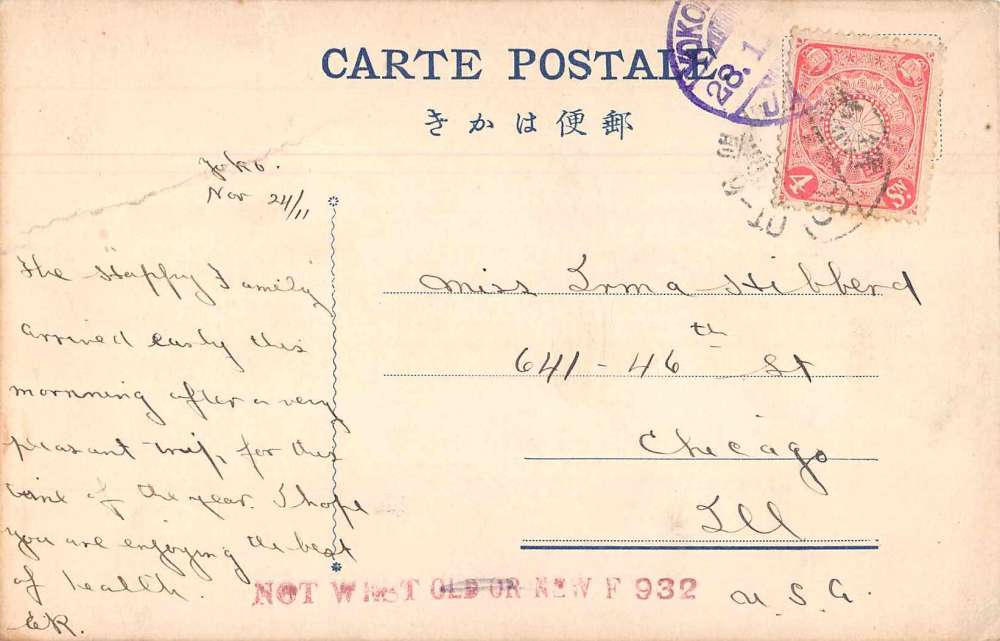 CARTE POSTALE
きかは便郵
YOKO
28.1
4 Sn.
Yoko.
Nov 24/11
The "Happy Family"
arrived early this
mornning after a very
pleasant trip, for this
time of the year. I hope
you are enjoying the best
of health.
ER.
Miss Irma Hibberd
641 - 46th St
Chicago
Ill
U.S.A.
NOT WEST OLD OR NEW F 932